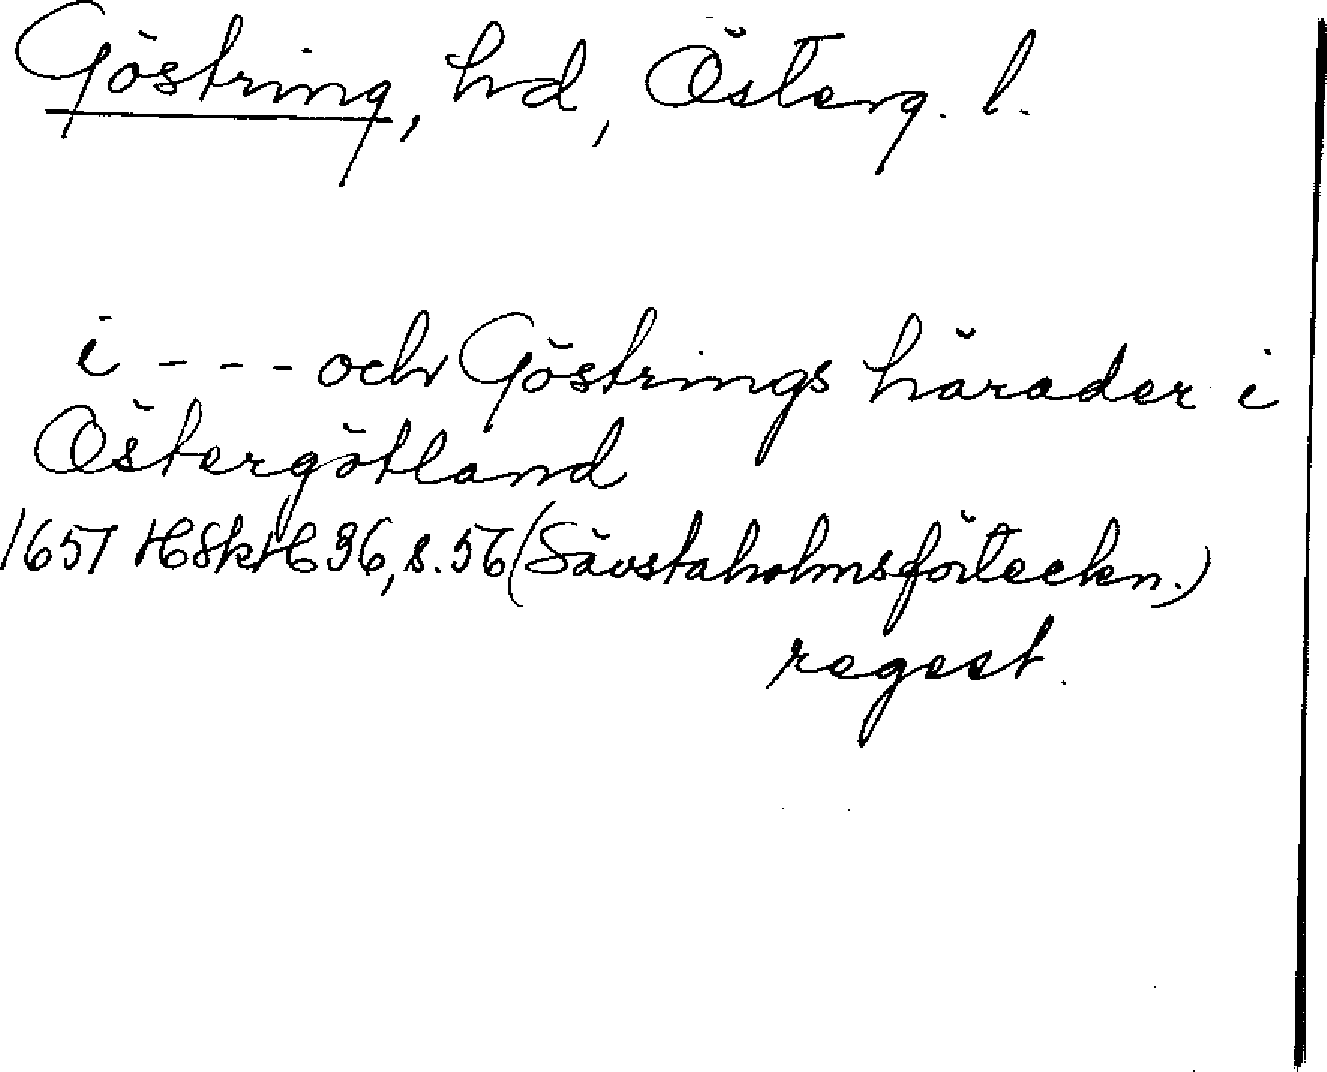 Göstring, hd, Österg. l.
i - - - - och Göstrings härader i
Östergötland
1657 HSkH 36, s. 56 (Sävstaholmsförteckn.)
regest.